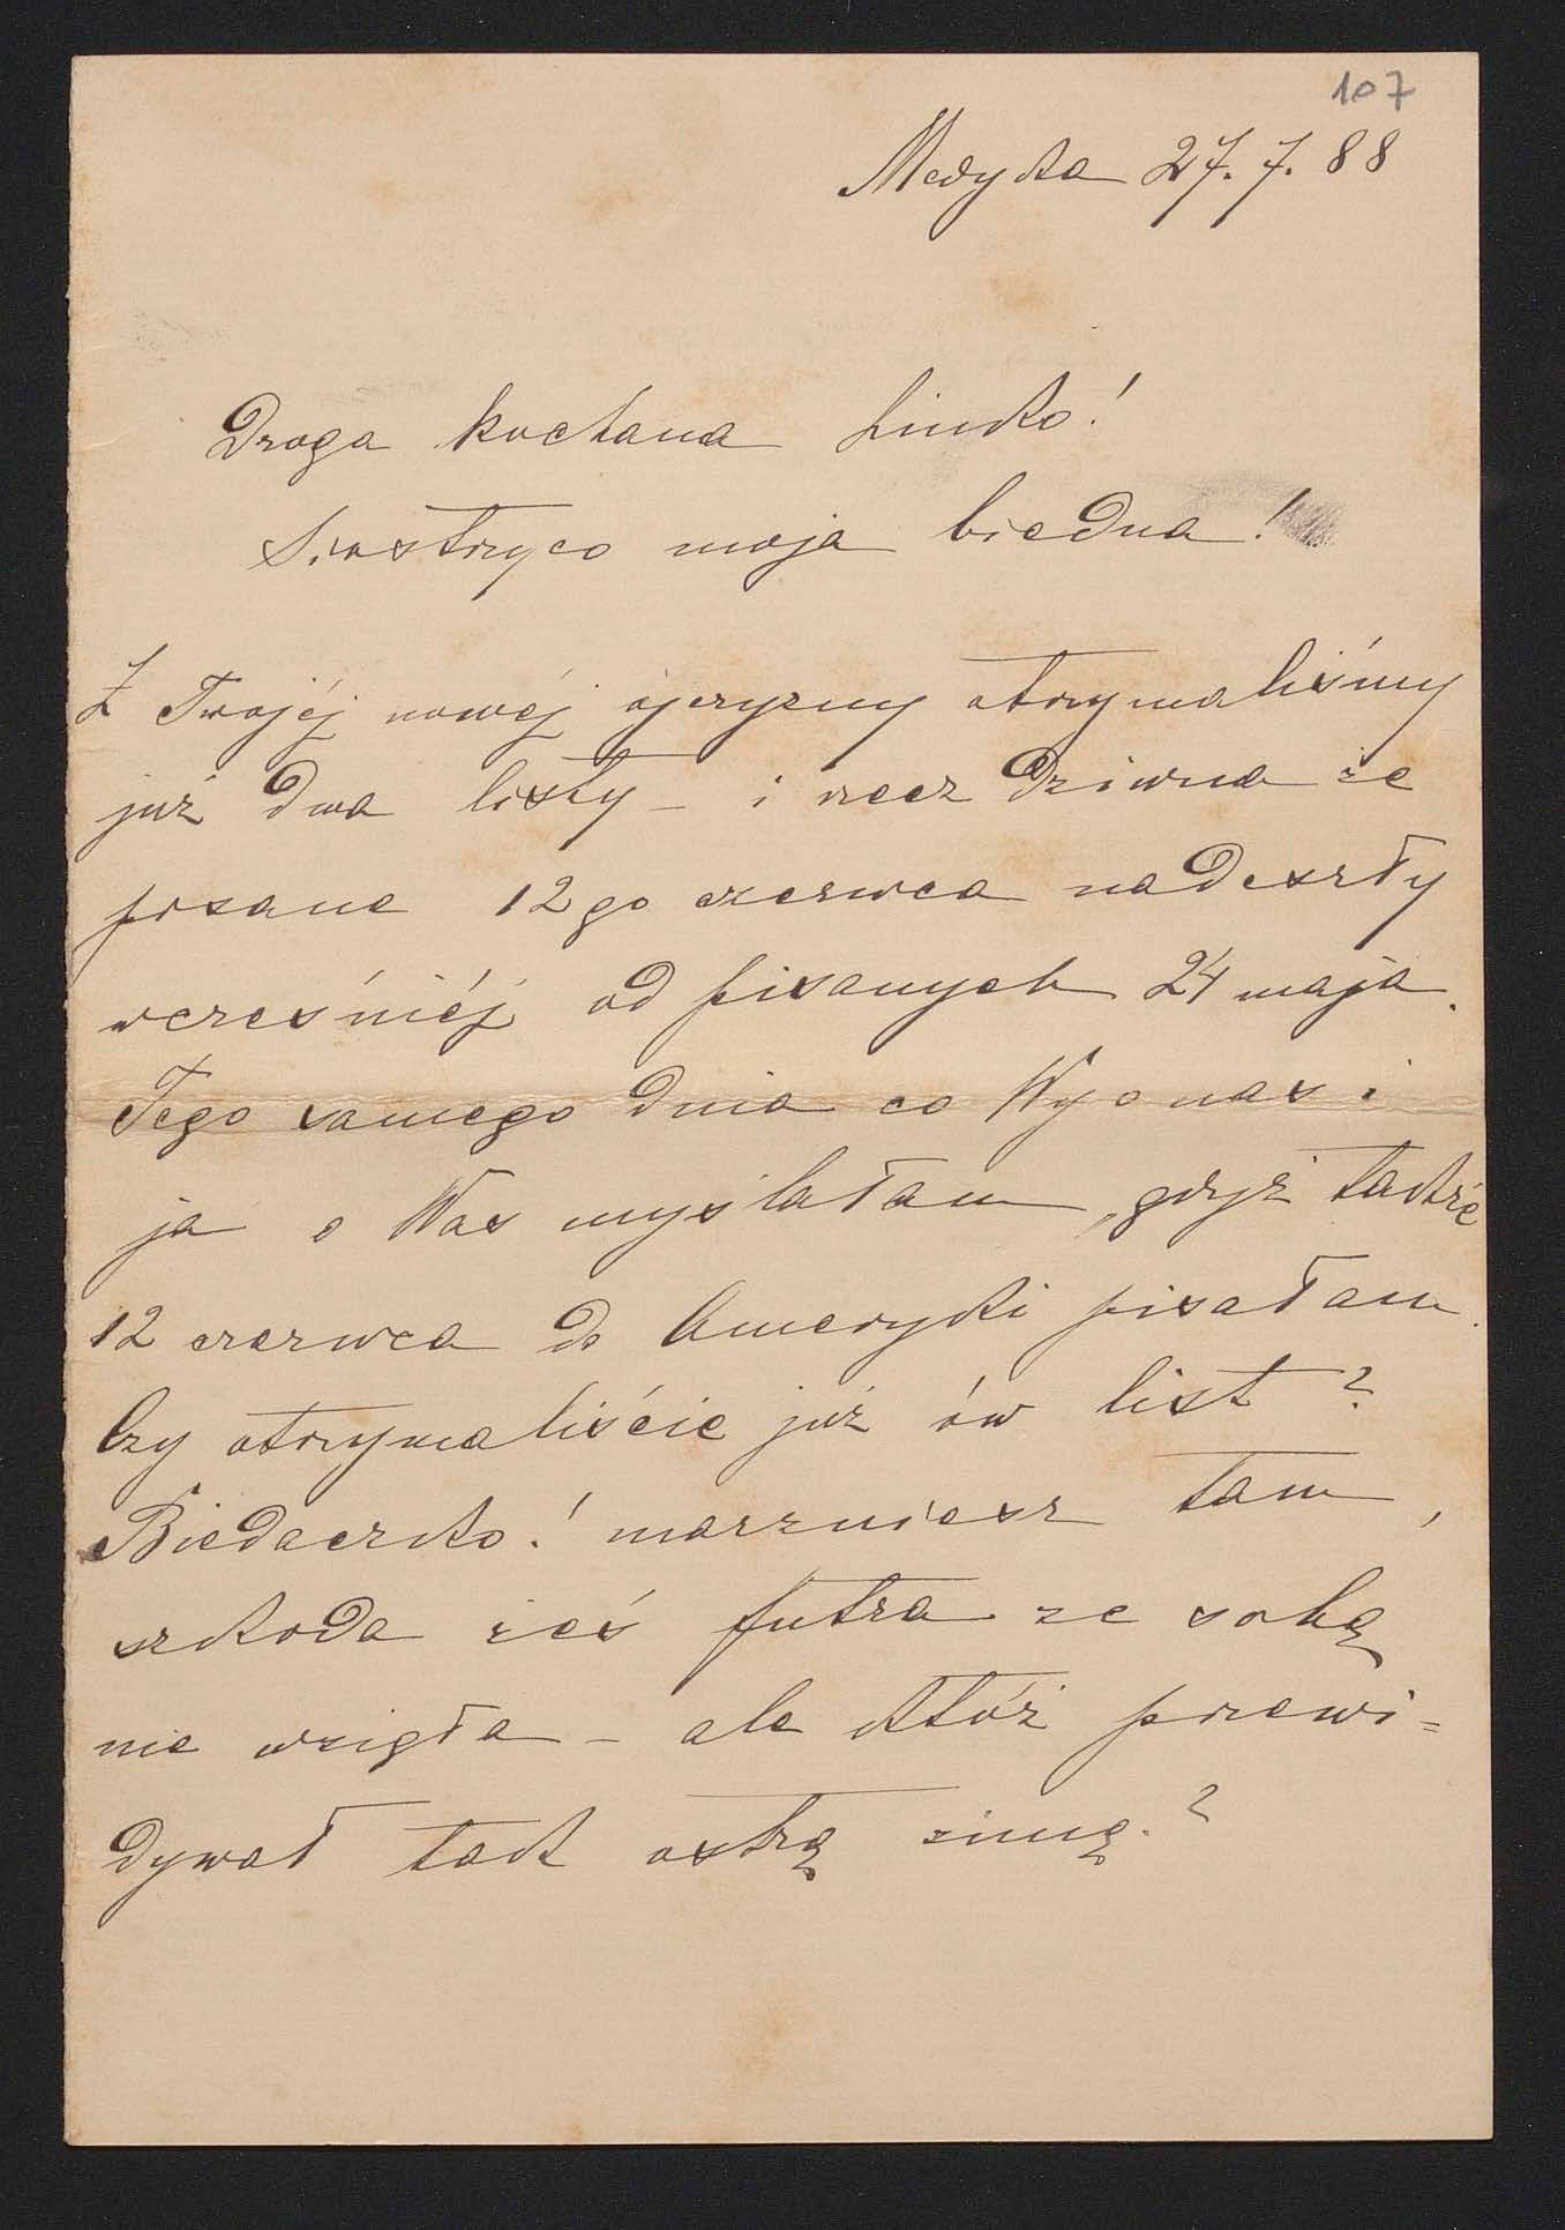 107
Medyka 27. 7. 88
Droga kochana Linko!
Siostrzyco moja biedna!
Z Twojéj nowéj ojczyzny otrzymaliśmy
już dwa listy – i rzecz dziwna że
pisane 12go czerwca nadeszły
wcześniéj od pisanych 24 maja.
Tego samego dnia co Wy o nas i
ja o Was myślałam, gdyż także
12 czerwca do Ameryki pisałam.
Czy otrzymaliście już ów list?
Biedaczko! marzniesz tam,
szkoda żeś futra ze sobą
nie wzięła – ale któż przewi=
dywał tak ostrą zimę.?